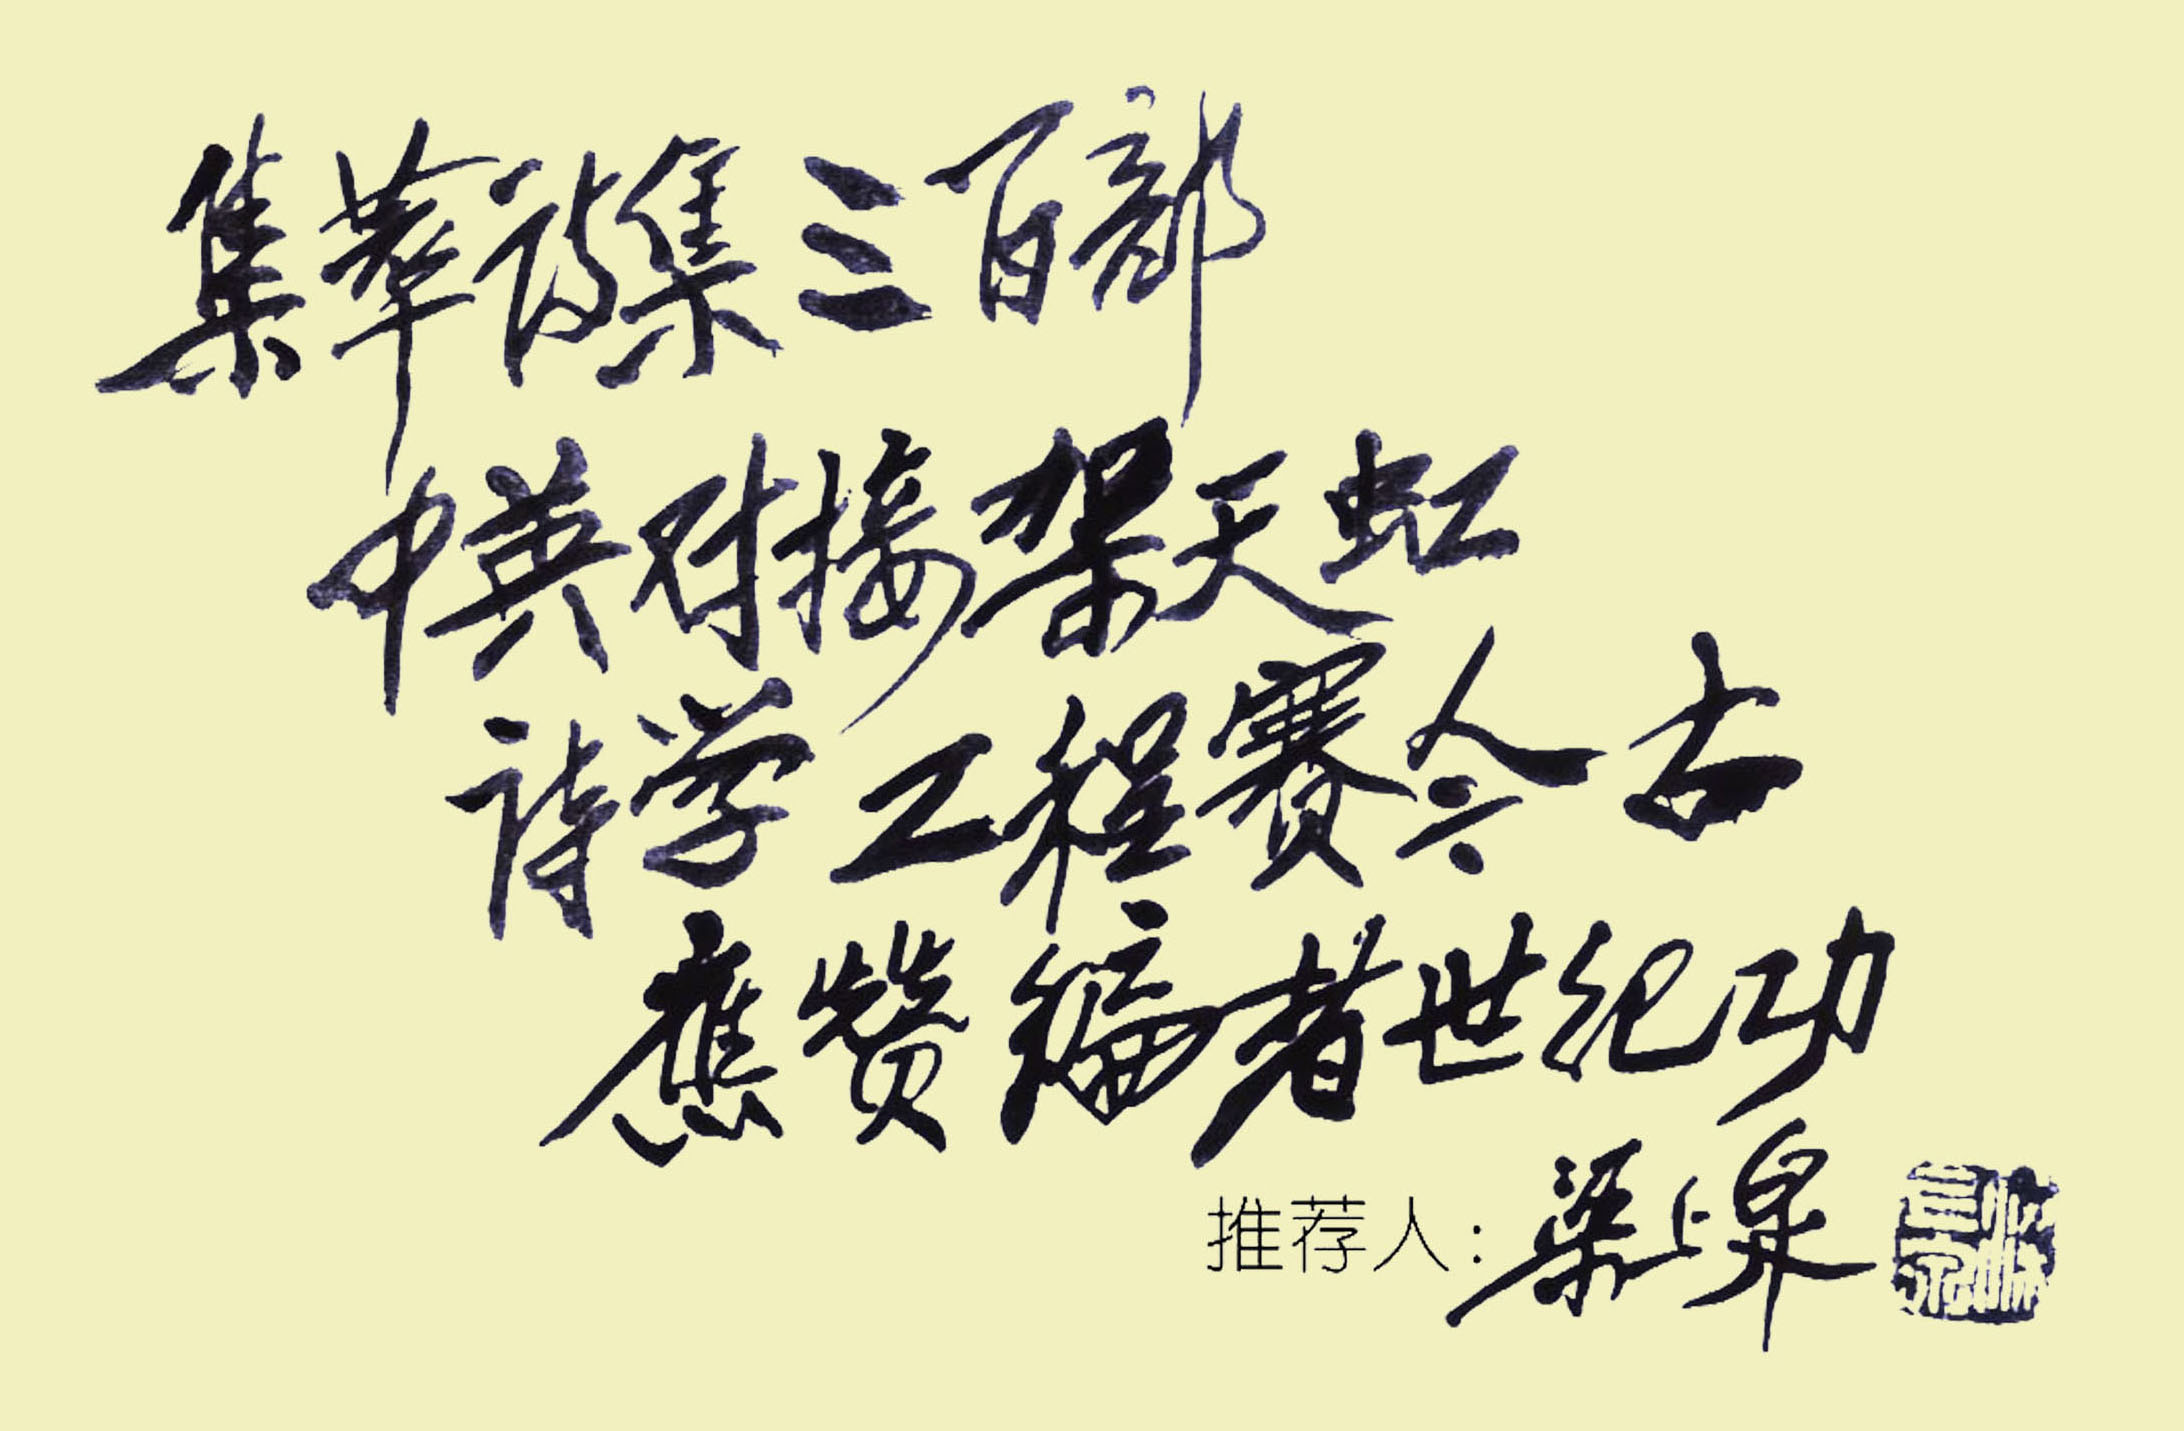 集萃诗集三百部
中英对接架天虹
诗学工程赛今古
應赞编者世纪功
推荐人:梁上泉